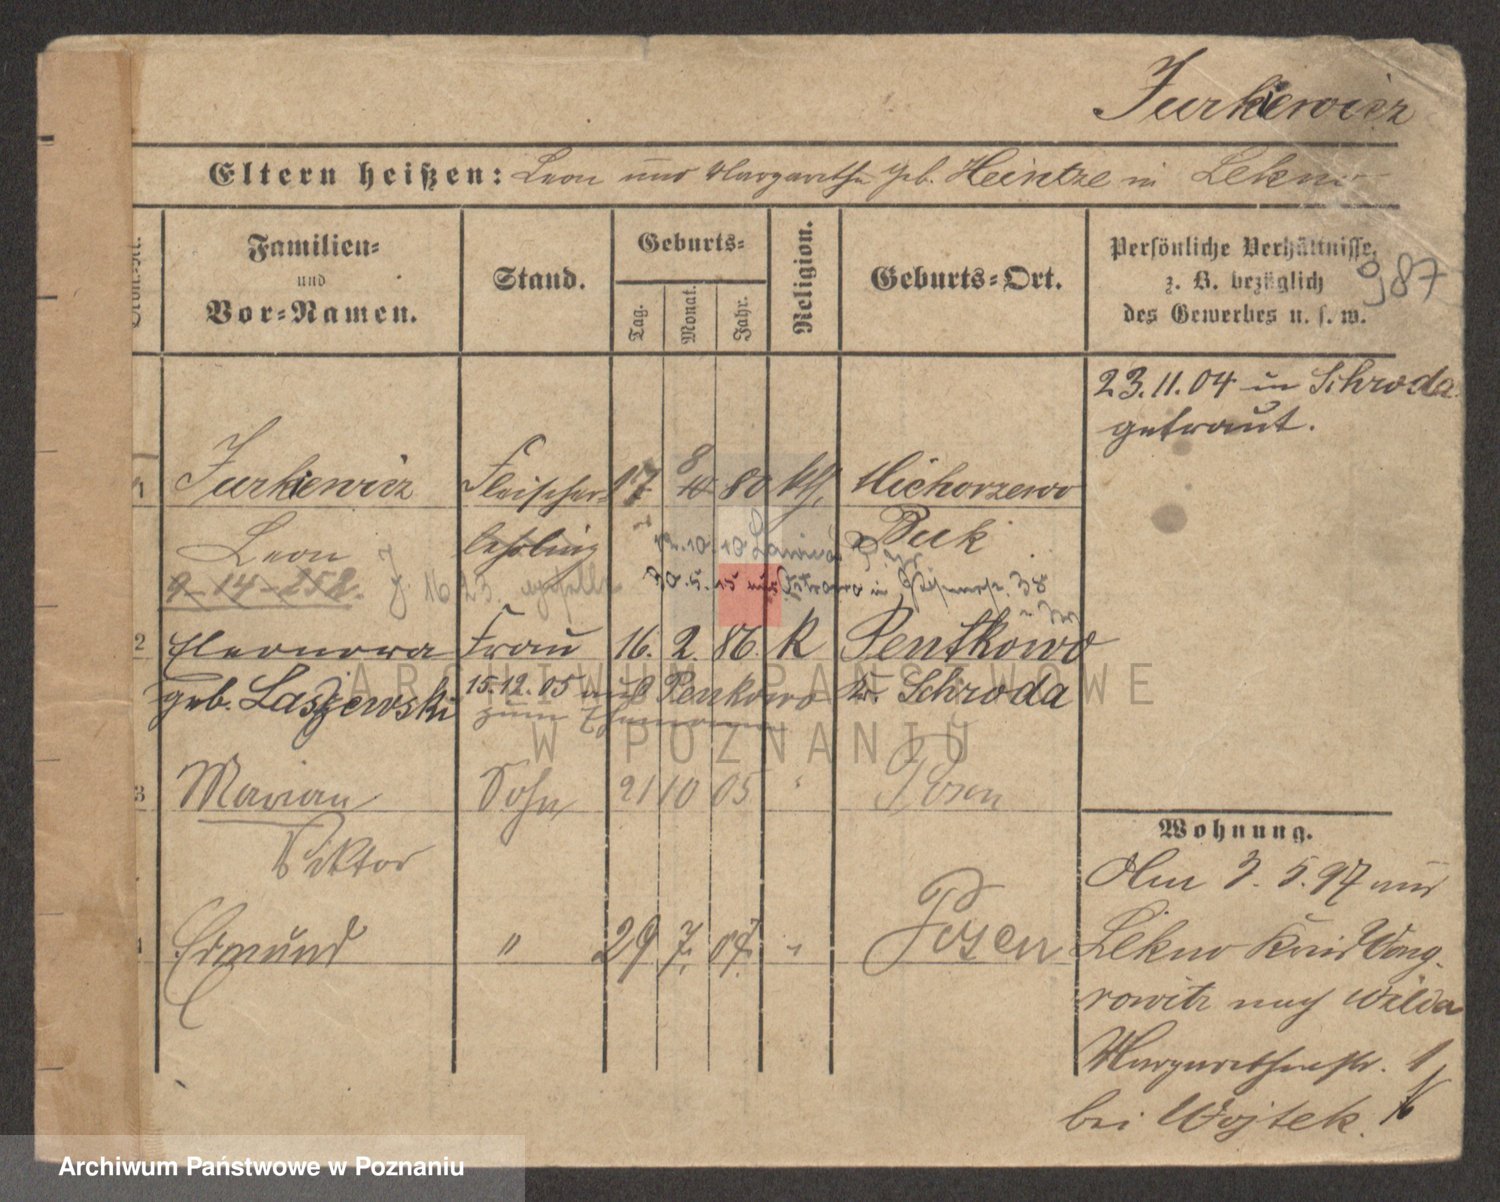 Jurkiewicz
Eltern heißen: Leon und Margarethe geb. Heintze in Lekno
Familien- und Vor-Namen.
Stand.
Geburts-
Tag.
Monat.
Jahr.
Religion.
Geburts-Ort.
Persönliche Verhältnisse,
z. B. bezüglich
des Gewerbes u. s. w.
987
23.11.04 in Schroda
getraut.
1 Jurkiewicz Fleischer- 17 8 80 kth. Michorzewo
Leon lehrling Buk
9-14-252. J. 16 23.
12.10.10
30.5.15 in 38
2 Eleonora Frau 16. 2. 86. K Pentkowo
geb. Laszewski 15.12.05 aus Penkowo Kr. Schroda
zum Ehemann
3 Marian Sohn 21 10 05 " Posen
Viktor
4 Edmund " 29 7. 07. " Posen
Wohnung.
Am 3. 5. 97 aus
Lekno Kreis Wong-
rowitz nach Wilda
Margarethenstr. 1
bei Wojtek.
ARCHIWUM PAŃSTWOWE
W POZNANIU
Archiwum Państwowe w Poznaniu